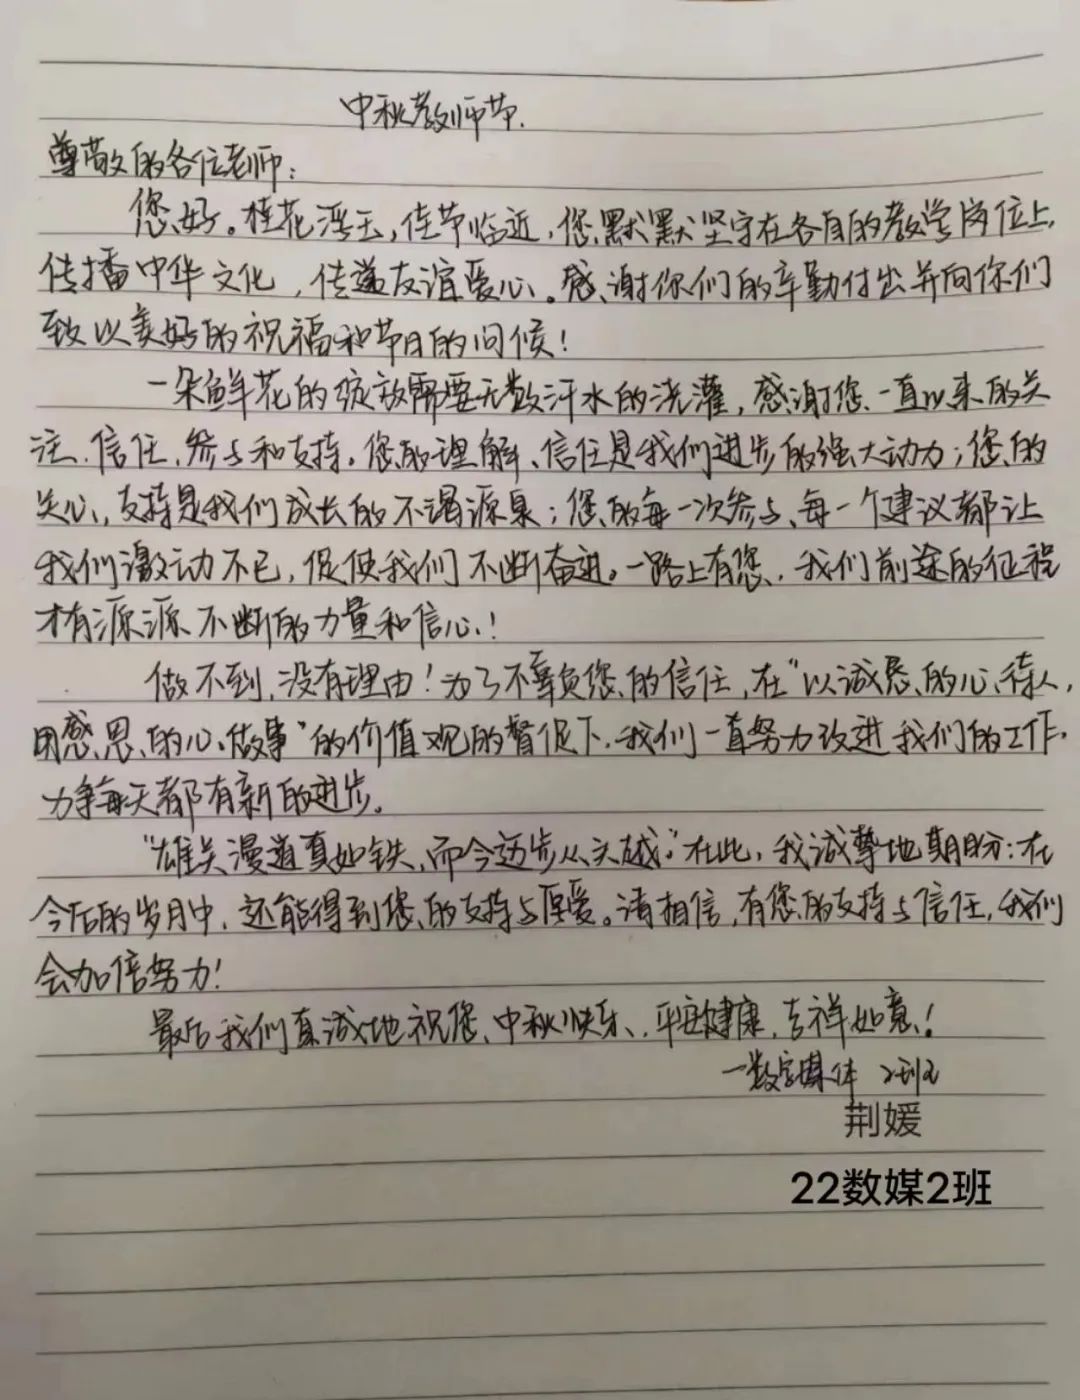 中秋教师节.
尊敬的各位老师：
您好。桂花浮玉，佳节临近，您默默坚守在各自的教学岗位上，
传播中华文化，传递友谊爱心。感谢你们的辛勤付出并向你们
致以美好的祝福和节日的问候！
一朵鲜花的绽放需要无数汗水的浇灌，感谢您一直以来的关
注、信任、参与和支持。您的理解、信任是我们进步的强大动力；您的
关心、支持是我们成长的不竭源泉；您的每一次参与、每一个建议都让
我们激动不已，促使我们不断奋进。一路上有您，我们前途的征程
才有源源不断的力量和信心！
做不到，没有理由！为了不辜负您的信任，在“以诚恳的心待人，
用感恩的心做事”的价值观的督促下，我们一直努力改进我们的工作，
力争每天都有新的进步。
“雄关漫道真如铁，而今迈步从头越”在此，我诚挚地期盼：在
今后的岁月中，还能得到您的支持与厚爱。请相信，有您的支持与信任，我们
会加倍努力！
最后我们真诚地祝您、中秋快乐、平安健康，吉祥如意！
一数字媒体 2班
荆媛
22数媒2班